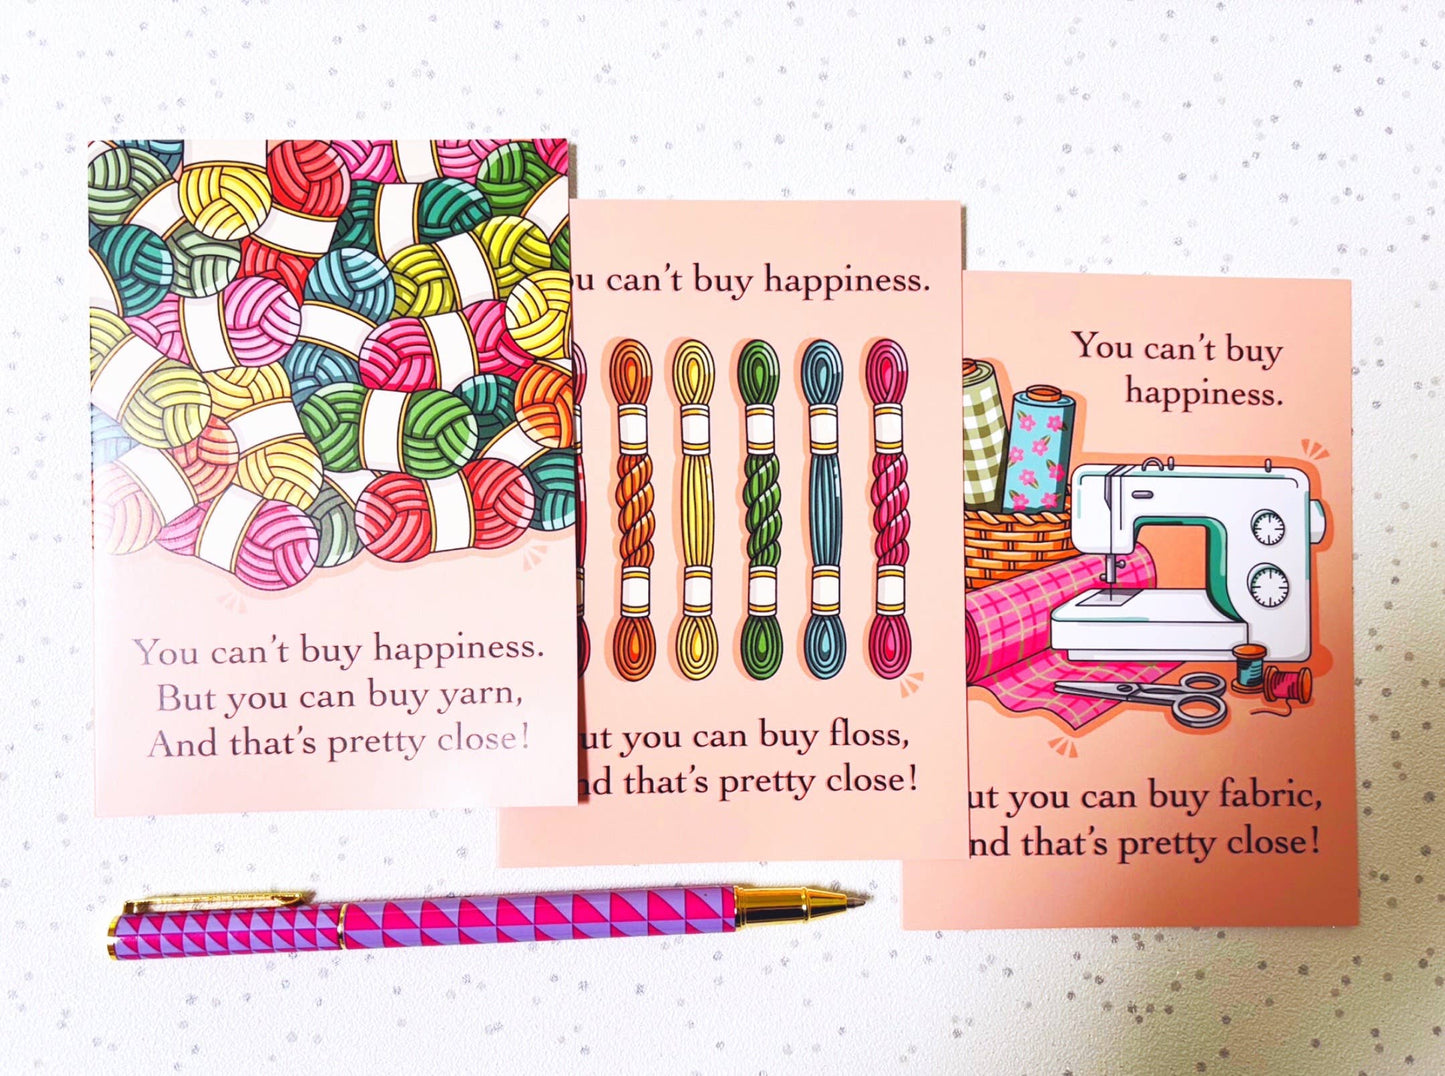 You can't buy happiness.
But you can buy yarn,
And that's pretty close!
ou can't buy happiness.
ut you can buy floss,
nd that's pretty close!
You can't buy
happiness.
ut you can buy fabric,
nd that's pretty close!